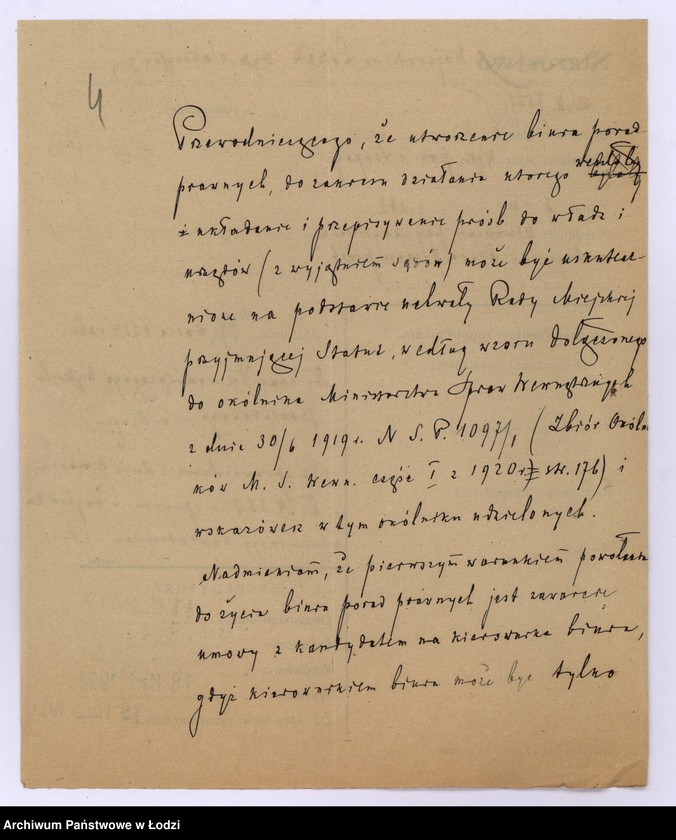 4
Przewodniczącego, że utworzenie biura porad
prawnych, do zakresu działania którego
układanie i przepisywanie próśb do władz i
urzędów (z wyjątkiem sądów) może być uskutecz-
nione na podstawie uchwały Rady Miejskiej
przyjmującej Statut, według wzoru dołączonego
do okólnika Ministerstwa Spraw Wewnętrznych
z dnia 30/6 1919 r. N S. P. 1097/1, (Zbiór Okólni-
ków M. S. Wewn. część I z 1920 r. str. 176) i
wskazówek w tym okólniku udzielonych.
Nadmieniam, że pierwszym warunkiem powołania
do życia biura porad prawnych jest zawarcie
umowy z kandydatem na kierownika biura,
gdyż kierownikiem biura może być tylko
Archiwum Państwowe w Łodzi